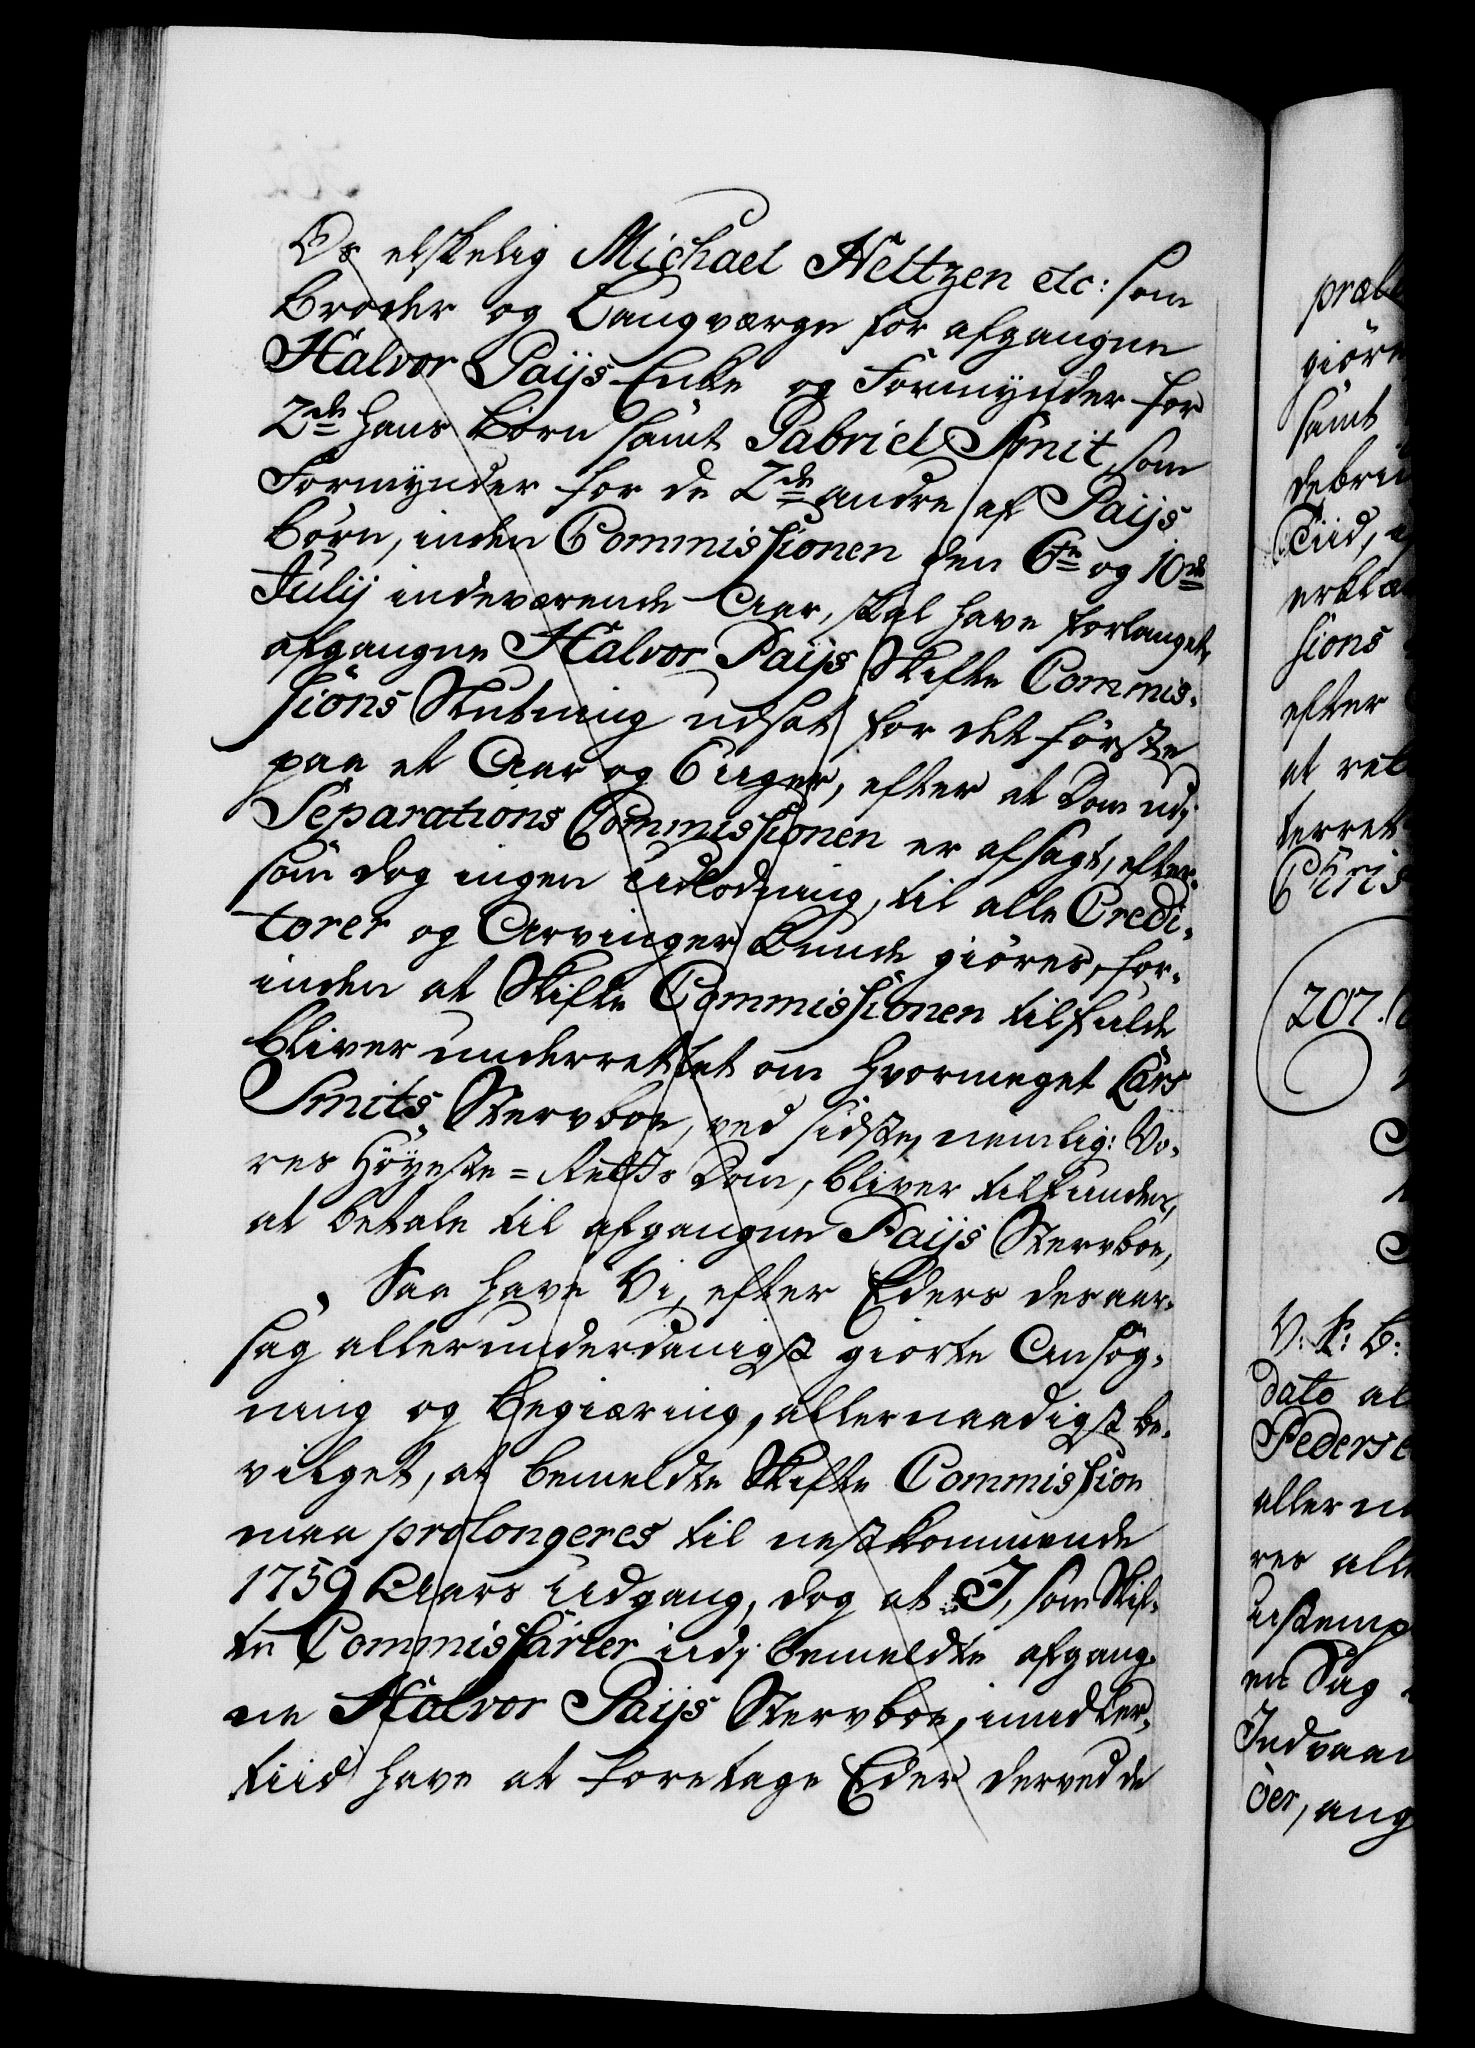 Os elskelig Michael Heltzen etc: som
Broder og Laugværge for afgangne
Halvor Paÿs Enke og Formynder for
2de hans Börn samt Gabriel Smit, som
Formynder for de 2de andre af Paÿs
Börn, inden Commissionen den 6te og 10de
Julij indeværende Aar, skal have forlanget,
afgangne Halvor Paÿs Skifte Commis-
sions Slutning udsat for det förste
paa et Aar og 6 Uger, efter at Dom udj
Separations Commissionen er afsagt, efter-
som dog ingen Udlodning, til alle Credi-
torer og Arvinger kunde giöres, for-
inden at Skifte Commissionen tilfulde
bliver underrettet om hvormeget Lars
Smits Stervboe, ved sidste, nemlig: Vo-
res Höyeste-Retts Dom, bliver tilfunden,
at betale til afgangne Paÿs Stervboe,
Saa have Vi, efter Eders desaar-
sag allerunderdanigst giorte Ansög-
ning og Begiæring, allernaadigst be-
vilget, at bemeldte Skifte Commission
maa prolongeres til nestkommende
1759 Aars Udgang, dog at I, som Skif-
te Commissarier udj bemeldte afgang-
ne Halvor Paÿs Stervboe, imidler-
tiid have at foretage Eder derved de
præt
giöre
samt
debru
Tiid,
erklæ
sions
efter
at ret
terret
Chris
207.
V: S: B:
dato al
Peders
allerna
res all
en Sag
Indvaan
öer, ang